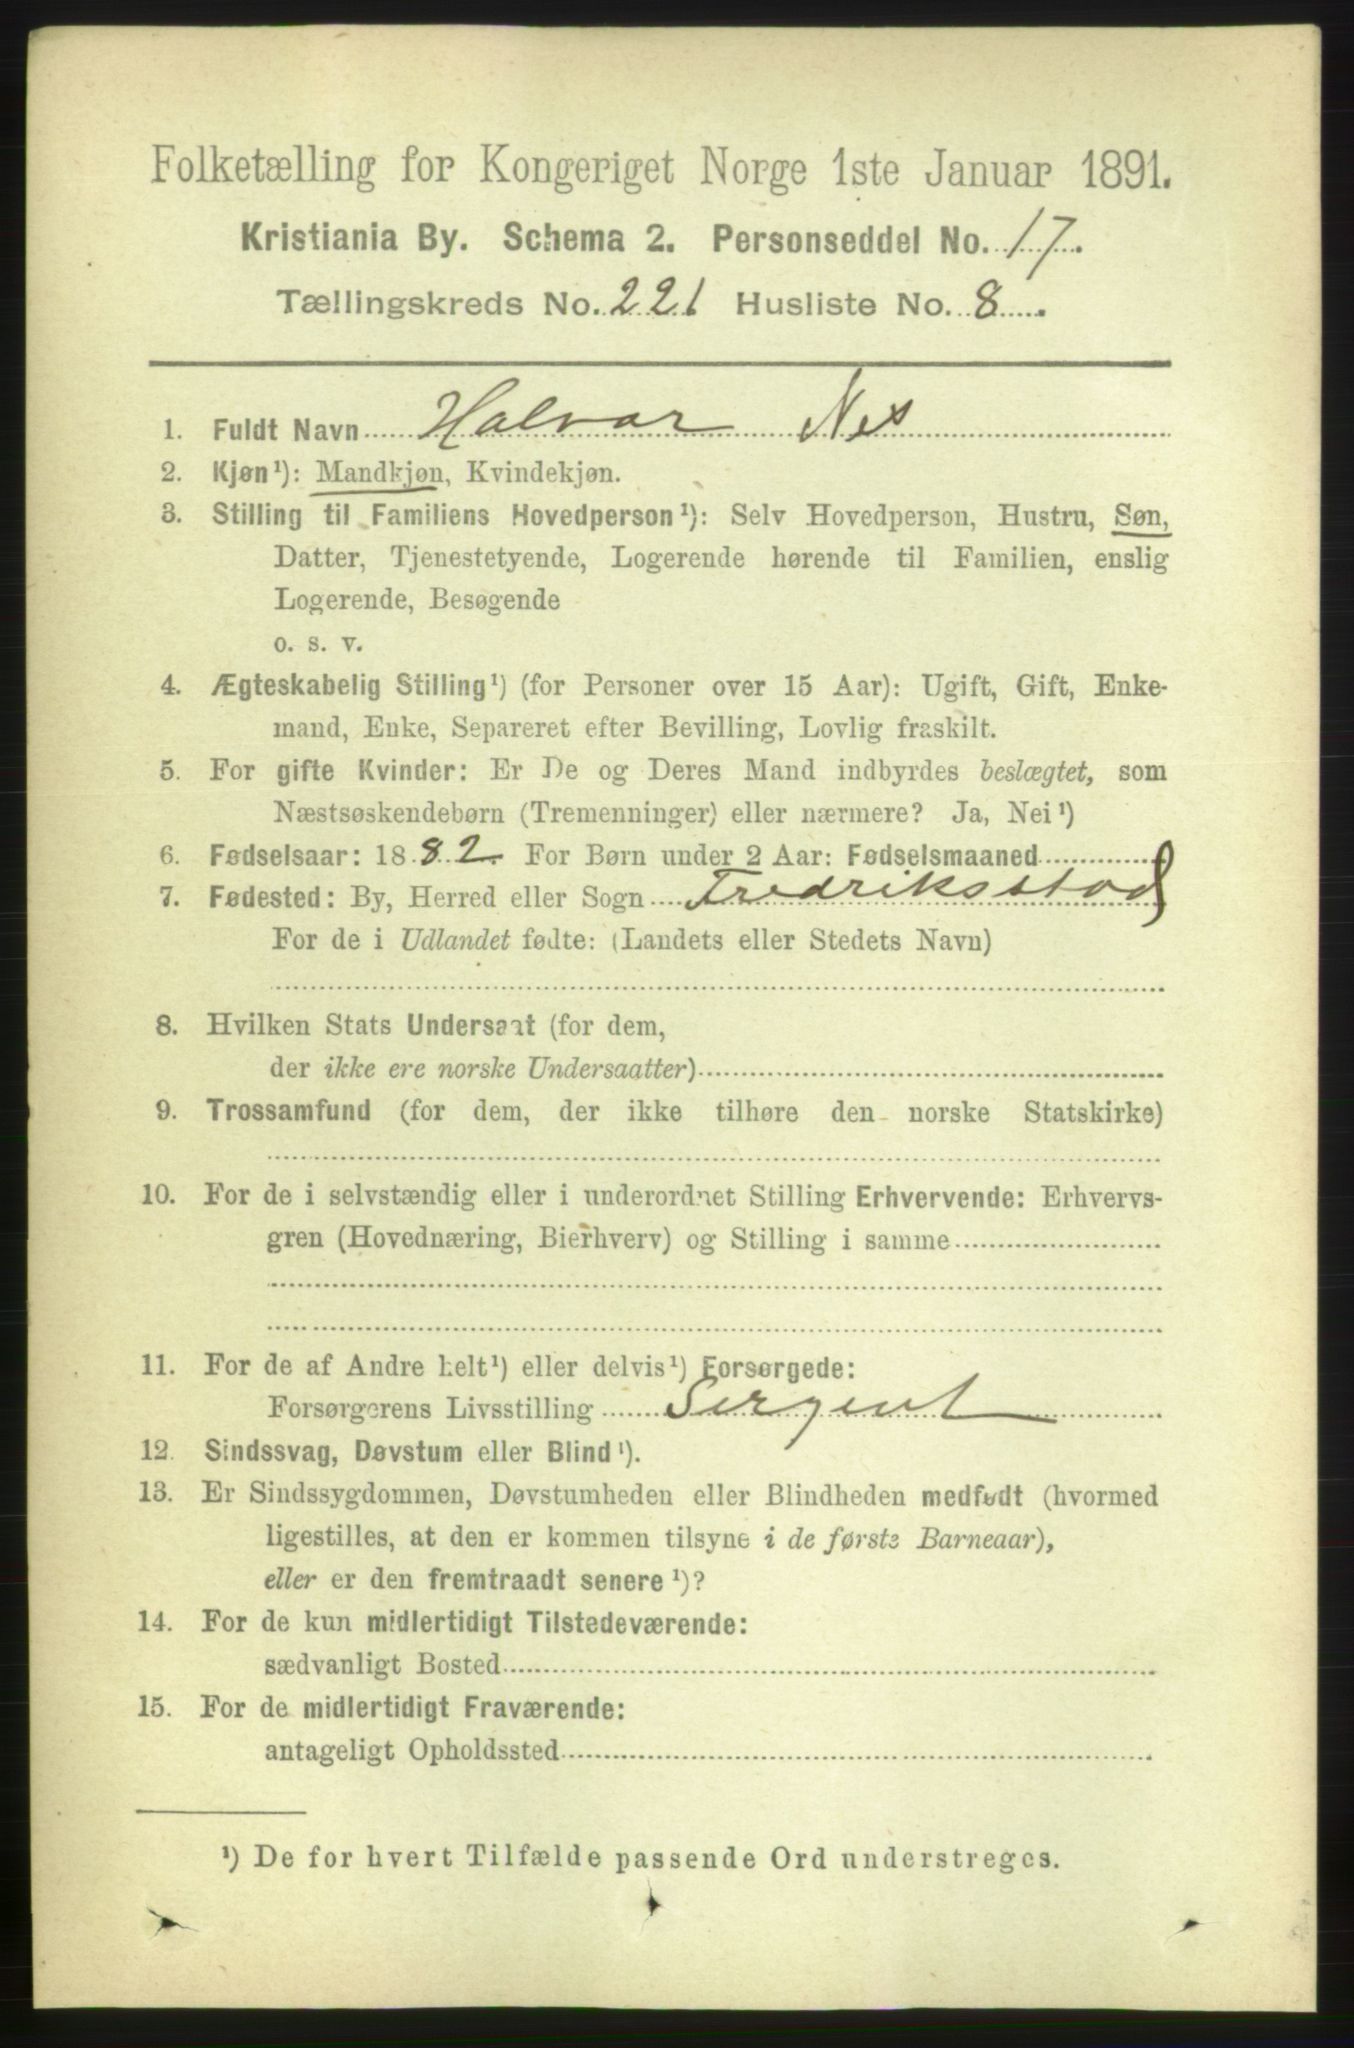 Folketælling for Kongeriget Norge 1ste Januar 1891.
Kristiania By. Schema 2. Personseddel No. 17.
Tællingskreds No. 221 Husliste No. 8.
1. Fuldt Navn Halvar Nes
2. Kjøn¹): Mandkjøn, Kvindekjøn.
3. Stilling til Familiens Hovedperson¹): Selv Hovedperson, Hustru, Søn,
Datter, Tjenestetyende, Logerende hørende til Familien, enslig
Logerende, Besøgende
o. s. v.
4. Ægteskabelig Stilling¹) (for Personer over 15 Aar): Ugift, Gift, Enke-
mand, Enke, Separeret efter Bevilling, Lovlig fraskilt.
5. For gifte Kvinder: Er De og Deres Mand indbyrdes beslægtet, som
Næstsøskendebørn (Tremenninger) eller nærmere? Ja, Nei¹)
6. Fødselsaar: 1882. For Børn under 2 Aar: Fødselsmaaned
7. Fødested: By, Herred eller Sogn Fredriksstad
For de i Udlandet fødte: (Landets eller Stedets Navn)
8. Hvilken Stats Undersaat (for dem,
der ikke ere norske Undersaatter)
9. Trossamfund (for dem, der ikke tilhøre den norske Statskirke)
10. For de i selvstændig eller i underordnet Stilling Erhvervende: Erhvervs-
gren (Hovednæring, Bierhverv) og Stilling i samme
11. For de af Andre helt¹) eller delvis¹) Forsørgede:
Forsørgerens Livsstilling Sergent
12. Sindssvag, Døvstum eller Blind¹).
13. Er Sindssygdommen, Døvstumheden eller Blindheden medfødt (hvormed
ligestilles, at den er kommen tilsyne i de første Barneaar),
eller er den fremtraadt senere¹)?
14. For de kun midlertidigt Tilstedeværende:
sædvanligt Bosted
15. For de midlertidigt Fraværende:
antageligt Opholdssted
¹) De for hvert Tilfælde passende Ord understreges.